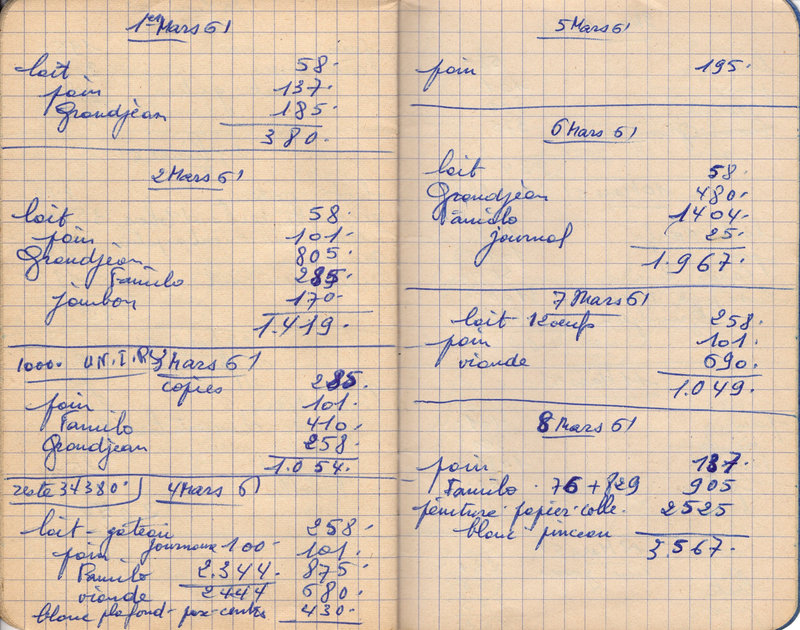 1er Mars 61
lait 58.
pain 137.
Grandjean 185
380.
2 Mars 61
lait 58.
pain 101.
Grandjean 805.
Familo 285.
jambon 170.
1.419.
1000. U.N.I.R. 3 Mars 61
copies 285.
pain 101.
Familo 410.
Grandjean 258.
1.054.
reste 34380. 4 Mars 61
lait - gâteau 258.
pain journaux 100. 101.
Familo 2.344. 875.
viande 2444 680.
blanc plafond - 430.
5 Mars 61
pain 195.
6 Mars 61
lait 58.
Grandjean 480.
Familo 1404.
journal 25.
1.967.
7 Mars 61
lait 12 oeufs 258.
pain 101.
viande 690.
1.049.
8 Mars 61
pain 137.
Familo . 76 + 829 905
peinture. papier. colle. 2525
blanc. pinceau
3.567.